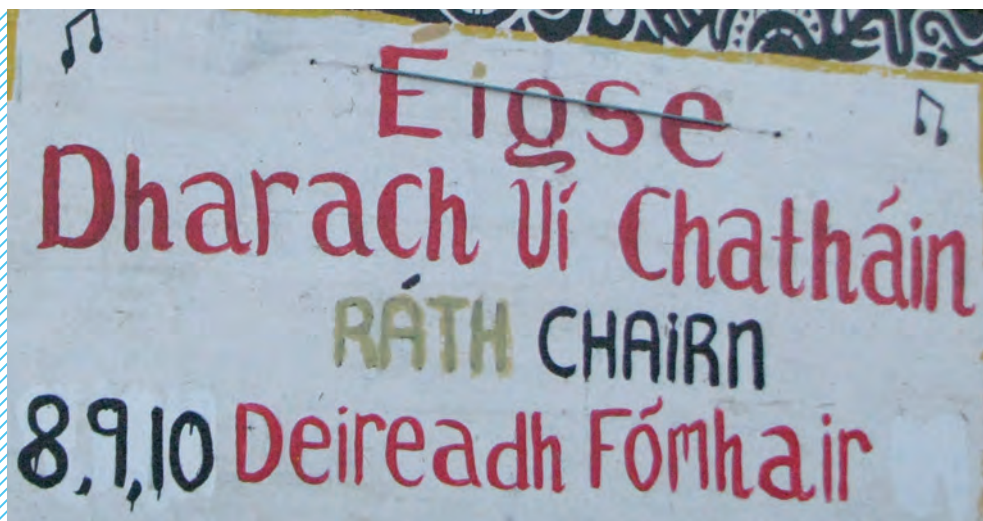 Éigse
Dharach Uí Chatháin
RÁTH CHAIRN
8,9,10 Deireadh Fómhair